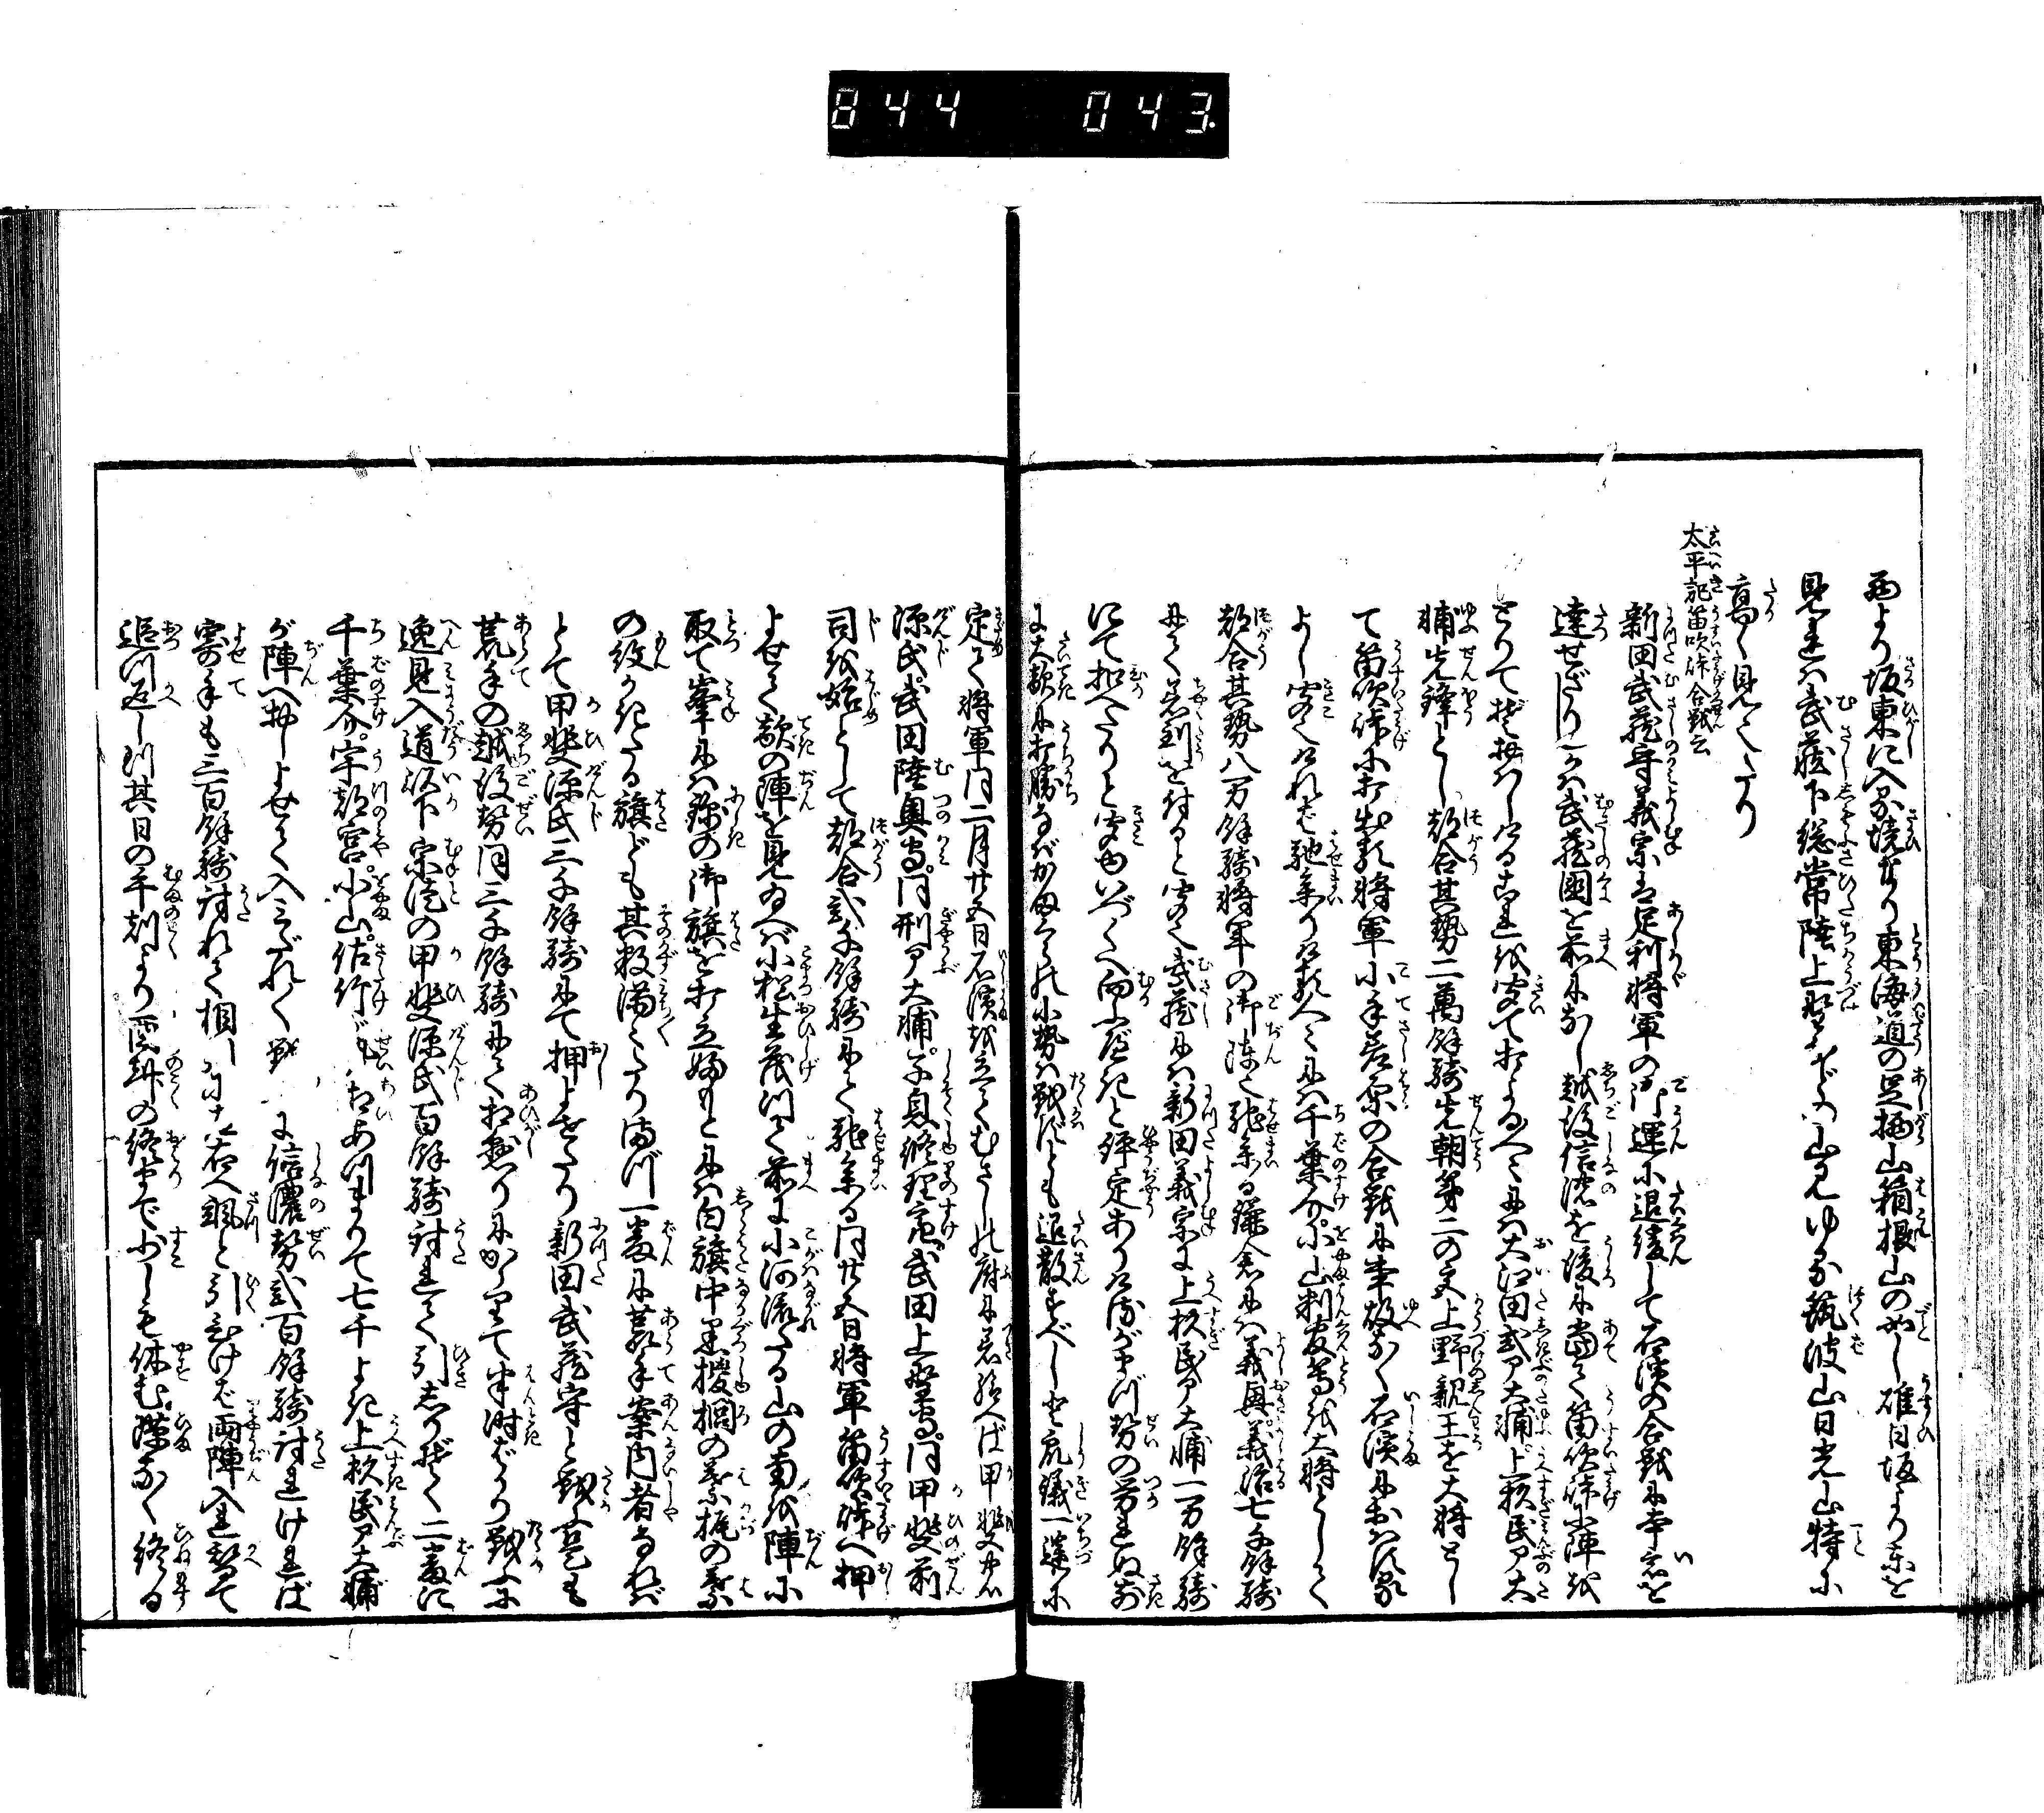 844 043
西より坂東に入る境なり東海道の足柄山箱根山の如し碓日坂より東を
見れバ武蔵下総常陸上野などの山見ゆる筑波山日光山特に
高く見えたり
太平記笛吹峠合戦云
新田武蔵守義宗ハ足利将軍の御運に退緩して石浜の合戦に本意を
達せざりしかバ武蔵国を前になし越後信濃を後に当て笛吹峠に陣を
とりてぞおハしける是を聞て打よる人々にハ大江田式部大輔上杉民部大
輔先鋒とし都合其勢二萬餘騎先朝第二の宮上野親王を大将とし
て笛吹峠に打出る将軍小手差原の合戦に事故なく石浜におハする
よし聞えけれバ馳参りける人々にハ千葉介小山判官を大将として
都合其勢八万餘騎将軍の御陣へ馳参る鎌倉にハ義興義治七千餘騎
にて着到を付ると聞え武蔵にハ新田義宗上杉民部大輔二万餘騎
にて扣へたりと聞ゆいづくへ向ふべきと評定ありけるがまづ勢の労せぬ前
に大敵に打勝なバ鎌倉の小勢ハ戦ハずとも退散すべし迚衆議一途に
定て将軍同二月廿五日石浜を立てむさしの府に着給へば甲斐
源氏武田陸奥守同刑部大輔子息修理亮武田上野守同甲斐前
司を始として都合弐千餘騎にて馳参る同廿八日将軍笛吹峠へ押
よせて敵の陣を見給へバ小松生茂りて前に小河流たる山の南を陣に
取て峯にハ錦の御旗を打立婦もとにハ白旗中黒棕櫚の葉梶の葉
の紋かきたる旗ども其数満々たりまづ一番に荒手案内者なれバ
とて甲斐源氏三千餘騎にて押よせたり新田武蔵守と戦ふ是も
荒手の越後勢同三千餘騎にて相懸りにかかりて半時ばかり戦ふに
逸見入道以下宗徒の甲斐源氏百餘騎討れて引しりぞく二番に
千葉介宇都宮小山佐竹が勢相あつまりて七千よき上杉民部大輔
が陣へ押しよせて入みだれて戦に信濃勢弐百餘騎討れければ
寄手も三百餘騎討れて相に左右へ颯と引ひけば両陣入かへて
追つ返しつ其日の午刻より酉刻の終まで少しも休む隙なく終る